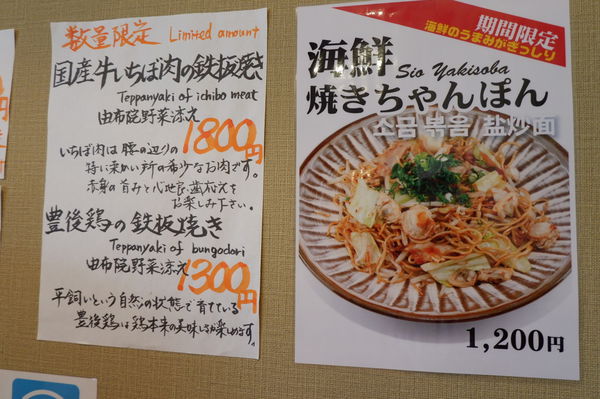 数量限定 Limited amount
国産牛いちぼ肉の鉄板焼き
Teppanyaki of ichibo meat
由布院野菜添え
1800円
いちぼ肉は腰の辺りの
特に柔かい所の希少なお肉です。
赤身の旨みと心地良い歯応えを
お楽しみ下さい。
豊後鶏の鉄板焼き
Teppanyaki of bungodori
由布院野菜添え
1300円
平飼いという自然の状態で育てている
豊後鶏は鶏本来の美味しさが楽しめます。
期間限定
海鮮のうまみがぎっしり
海鮮
Sio Yakisoba
焼きちゃんぽん
소금 볶음 盐炒面
1,200円